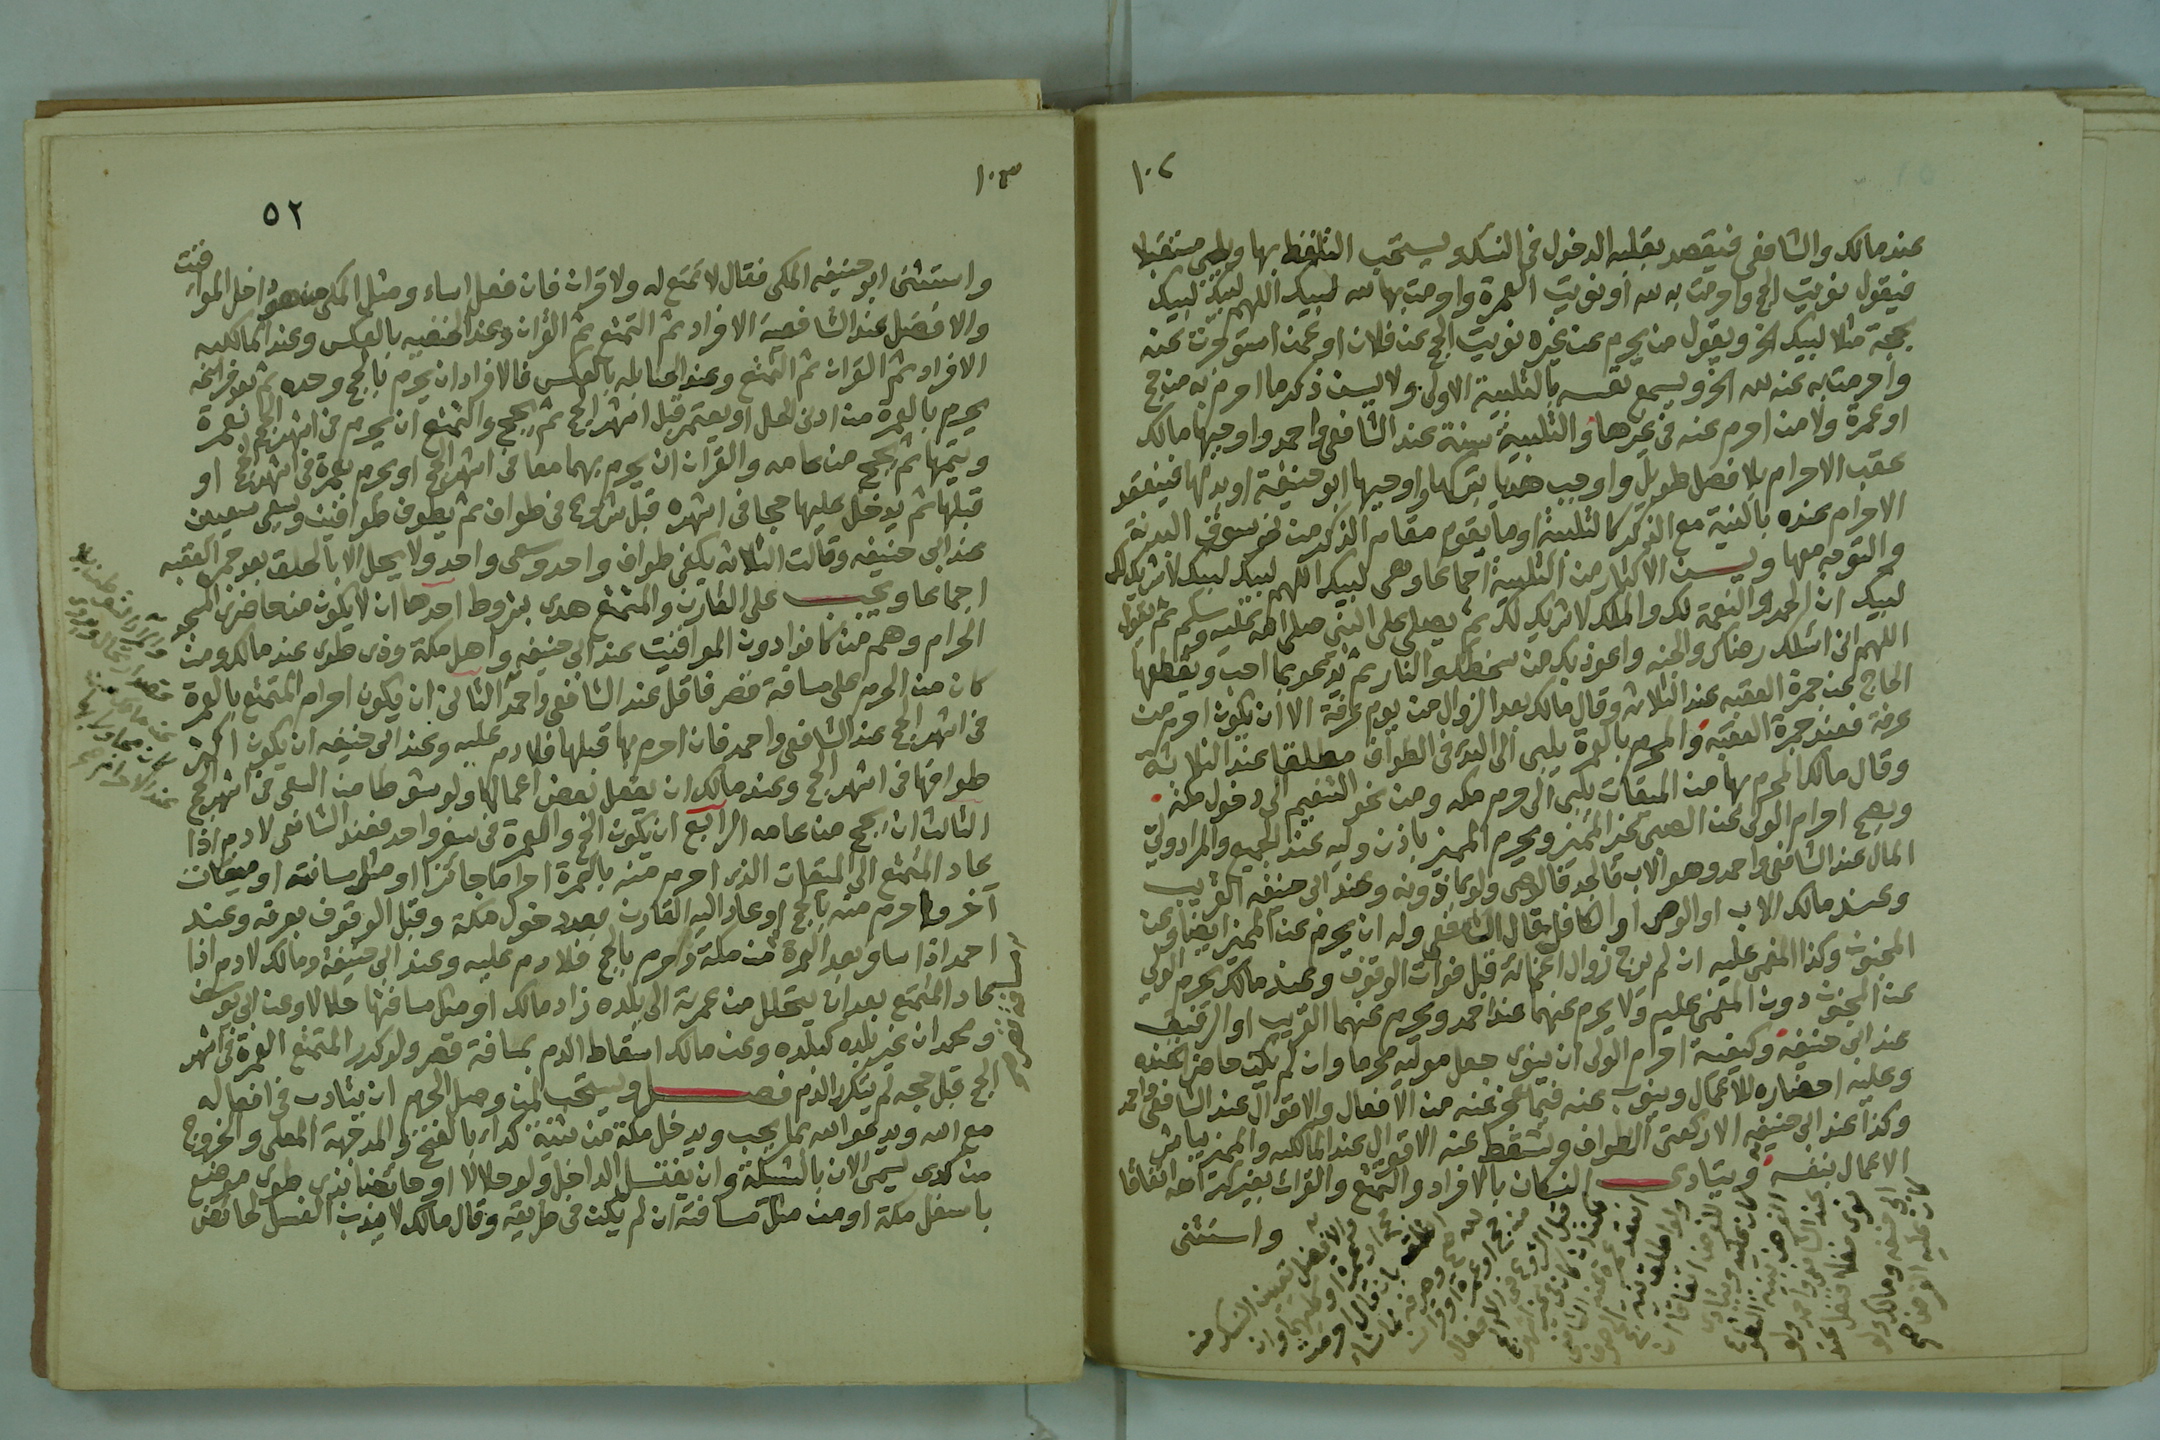 ١٠٢
عند مالك والشافعي فيقصد بقلبه الدخول في النسك ويستحب التلفظ بها ويلبي مستقبلا
فيقول نويت الحج واحرمت به لله او نويت العمرة واحرمت بها لله لبيك اللهم لبيك لبيك
بحجة مثلا لبيك الخ ويقول من يحرم عن غيره نويت الحج عن فلان او عمن استؤجرت عنه
واحرمت به عنه لله الخ ويسمع نفسه بالتلبية الاولى ولا يسن ذكر ما احرم به من حج
او عمرة ولا من احرم عنه في غيرها والتلبية سنة عند الشافعي واحمد واوجبها مالك
عقب الاحرام بلا فصل طويل واوجب هديا بتركها واوجبها ابو حنيفة او بدلها فينعقد
الاحرام عنده بالنية مع الذكر كالتلبية او ما يقوم مقام الذكر من نحو سوق البدنة
والتوجه معها ويسن الاكثار من التلبية اجماعا وهي لبيك اللهم لبيك لبيك لا شريك لك
لبيك ان الحمد والنعمة لك والملك لا شريك لك ثم يصلي على النبي صلى الله عليه وسلم ثم يقول
اللهم اني اسئلك رضاك والجنه واعوذ بك من سخطك والنار ثم يدعو بما احب ويقطعها
الحاج عن جمرة العقبه عند الثلاثه وقال مالك بعد الزوال من يوم عرفة الا ان يكون احرم من
عرفة فعند جمرة العقبه والمحرم بالعمرة يلبي الى البدء في الطواف مطلقا عند الثلاثة
وقال مالك المحرم بها من الميقات يلبي الى حرم مكه ومن نحو التنعيم الى دخول مكة
ويصح احرام الولي عن الصبي غير المميز ويحرم المميز باذن وليه عند الجميع والمراد ولي
المال عند الشافعي واحمد وهو الاب فالجد فالوصي ولو ما دونه وعند ابي حنيفه القريب
وعند مالك الاب او الوصي او الكافل وقال الشافعي وله ان يحرم عن المميز ايضا وعن
المجنون وكذا المغمى عليه ان لم يرج زوال اغمائه قبل فوات الوقوف وعند مالك يحرم الولي
عن المجنون دون المغمى عليه ولا يحرم عنهما عند احمد ويحرم عنهما القريب او الرفيق
عند ابي حنيفه وكيفية احرام الولي ان ينوي جعل موليه محرما وان لم يكن حاضرا عنده
وعليه احضاره للاعمال وينوب عنه فيما عجز عنه من الافعال والاقوال عند الشافعي واحمد
وكذا عند ابي حنيفه الا ركعتي الطواف وتسقط عنه الاقوال عند المالكيه والمميز يباشر
الاعمال بنفسه ويتادى النسكان بالافراد والتمتع والقران بغير كراهه اتفاقا
واستثنى
١٠٣
٥٢
واستثنى ابو حنيفه المكي فقال لا تمتع له ولا قران فان فعل اساء ومثل المكي من هو داخل المواقيت
والافضل عند الشافعية الافراد ثم التمتع ثم القران وعند الحنفيه بالعكس وعند المالكيه
الافراد ثم القران ثم التمتع وعند الحنابله بالعكس فالافراد ان يحرم بالحج وحده ثم بعد فراغه
يحرم بالعمرة من ادنى الحل او يعتمر قبل اشهر الحج ثم يحج والتمتع ان يحرم في اشهر الحج بعمرة
ويتمها ثم يحج من عامه والقران ان يحرم بهما معا في اشهر الحج او يحرم بعمرة في اشهر الحج او
قبلها ثم يدخل عليها حجا في اشهره قبل شروع في طواف ثم يطوف طوافين ويسعى سعيين
عند ابي حنيفه وقالت الثلاثه يكفي طواف واحد وسعي واحد ولا يحل الا بالحلق بعد جمر العقبه
اجماعا ويجب على القارن والمتمتع هدي بشروط احدها ان لا يكون من حاضري المسجد
الحرام وهم من كانوا دون المواقيت عند ابي حنيفه واهل مكة وذي طوى عند مالك ومن
كان من الحرم على مسافة قصر فاقل عند الشافعي واحمد الثاني ان يكون احرام المتمتع بالعمرة
في اشهر الحج عند الشافعي واحمد فان احرم بها قبلها فلا دم عليه وعند ابي حنيفه ان يكون اكثر
طوافها في اشهر الحج وعند مالك ان يفعل بعض اعمالها ولو شوطا من السعي في اشهر الحج
الثالث ان يحج من عامه الرابع ان يكون الحج والعمرة في سفر واحد فعند الشافعي لا دم اذا
عاد المتمتع الى الميقات الذي احرم منه بالعمرة احراما جائزا او مثل مسافته او ميقات
آخر واحرم منه بالحج او عاد اليه القارن بعد دخول مكة وقبل الوقوف بعرفه وعند
احمد اذا سافر بعد العمرة من مكة واحرم بالحج فلا دم عليه وعند ابي حنيفة ومالك لا دم اذا
عاد المتمتع بعد ان يتحلل من عمرته الى بلده زاد مالك او مثل مسافتها حلالا وعن ابي يوسف
ومحمد ان غير بلده كبلده وعن مالك اسقاط الدم بمسافة قصر ولو كرر المتمتع العمرة في اشهر
الحج قبل حجه لم يتكرر الدم فصل ويستحب لمن وصل الحرم ان يتادب في افعاله
مع الله ويدعو الله بما يحب ويدخل مكة من ثنية كداء بالفتح والمد جهة المعلى والخروج
من كدى يسمى الان بالشبيكة وان يغتسل الداخل ولو حلالا او حائضا بذي طوى موضع
باسفل مكة او من مثل مسافته ان لم يكن في طريقه وقال مالك لا يندب الغسل لحائض